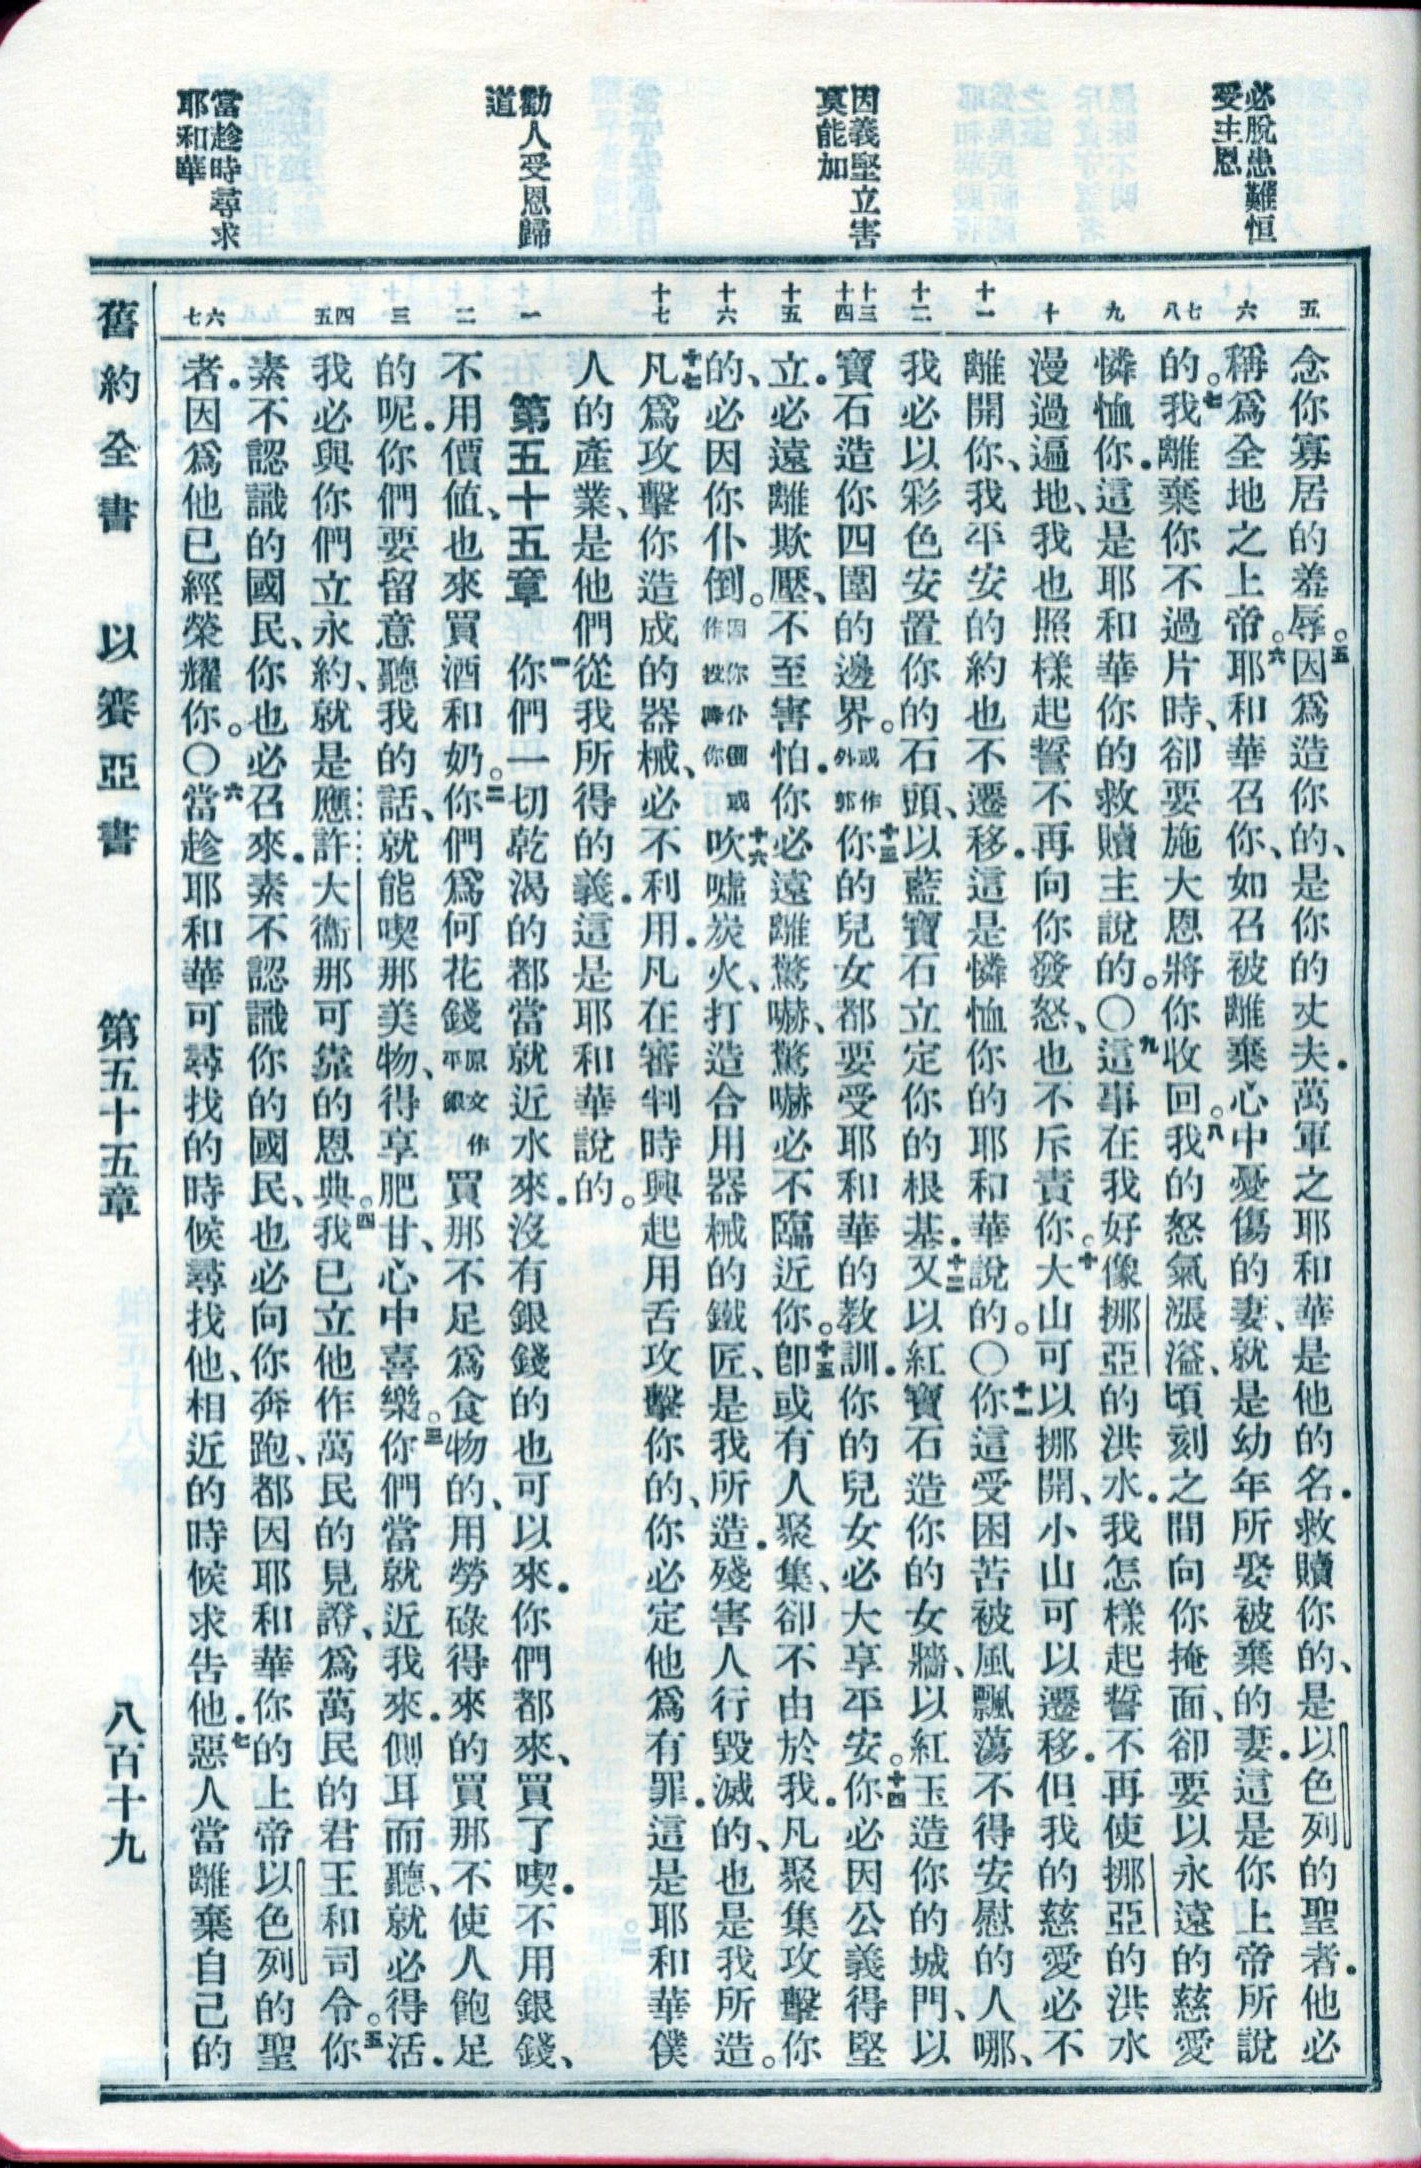 必脫患難恒
受主恩
因義堅立害
莫能加
勸人受恩歸
道
當趁時尋求
耶和華
五
六
七
八
九
十
十一
十二
十三
十四
十五
十六
十七
一
二
三
四
五
六
七
念你寡居的羞辱。五因爲造你的、是你的丈夫．萬軍之耶和華是他的名．救贖你的、是以色列的聖者．他必
稱爲全地之上帝。六耶和華召你、如召被離棄心中憂傷的妻、就是幼年所娶被棄的妻．這是你上帝所說
的。七我離棄你不過片時、卻要施大恩將你收回。八我的怒氣漲溢、頃刻之間向你掩面、卻要以永遠的慈愛
憐恤你．這是耶和華你的救贖主說的。〇九這事在我好像挪亞的洪水．我怎樣起誓不再使挪亞的洪水
漫過遍地、我也照樣起誓不再向你發怒、也不斥責你。十大山可以挪開、小山可以遷移．但我的慈愛必不
離開你、我平安的約也不遷移．這是憐恤你的耶和華說的。〇十一你這受困苦被風飄蕩不得安慰的人哪、
我必以彩色安置你的石頭、以藍寶石立定你的根基．十二又以紅寶石造你的女牆、以紅玉造你的城門、以
寶石造你四圍的邊界。或作外郭十三你的兒女都要受耶和華的教訓．你的兒女必大享平安。十四你必因公義得堅
立．必遠離欺壓、不至害怕．你必遠離驚嚇、驚嚇必不臨近你。十五即或有人聚集、卻不由於我．凡聚集攻擊你
的、必因你仆倒。因你仆倒或作投降你十六吹噓炭火、打造合用器械的鐵匠、是我所造．殘害人行毀滅的、也是我所造。
十七凡爲攻擊你造成的器械、必不利用．凡在審判時興起用舌攻擊你的、你必定他爲有罪．這是耶和華僕
人的產業、是他們從我所得的義．這是耶和華說的。
第五十五章　一你們一切乾渴的都當就近水來．沒有銀錢的也可以來．你們都來、買了喫．不用銀錢、
不用價值、也來買酒和奶。二你們爲何花錢原文作平銀買那不足爲食物的、用勞碌得來的買那不使人飽足
的呢．你們要留意聽我的話、就能喫那美物、得享肥甘、心中喜樂。三你們當就近我來．側耳而聽、就必得活．
我必與你們立永約、就是應許大衞那可靠的恩典。四我已立他作萬民的見證、爲萬民的君王和司令。五你
素不認識的國民、你也必召來．素不認識你的國民、也必向你奔跑、都因耶和華你的上帝以色列的聖
者．因爲他已經榮耀你。〇六當趁耶和華可尋找的時候尋找他、相近的時候求告他．七惡人當離棄自己的
舊約全書　以賽亞書　第五十五章　八百十九